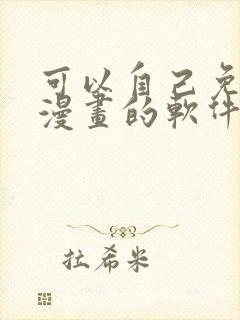 可以自己免
漫畫的軟件
拉希米